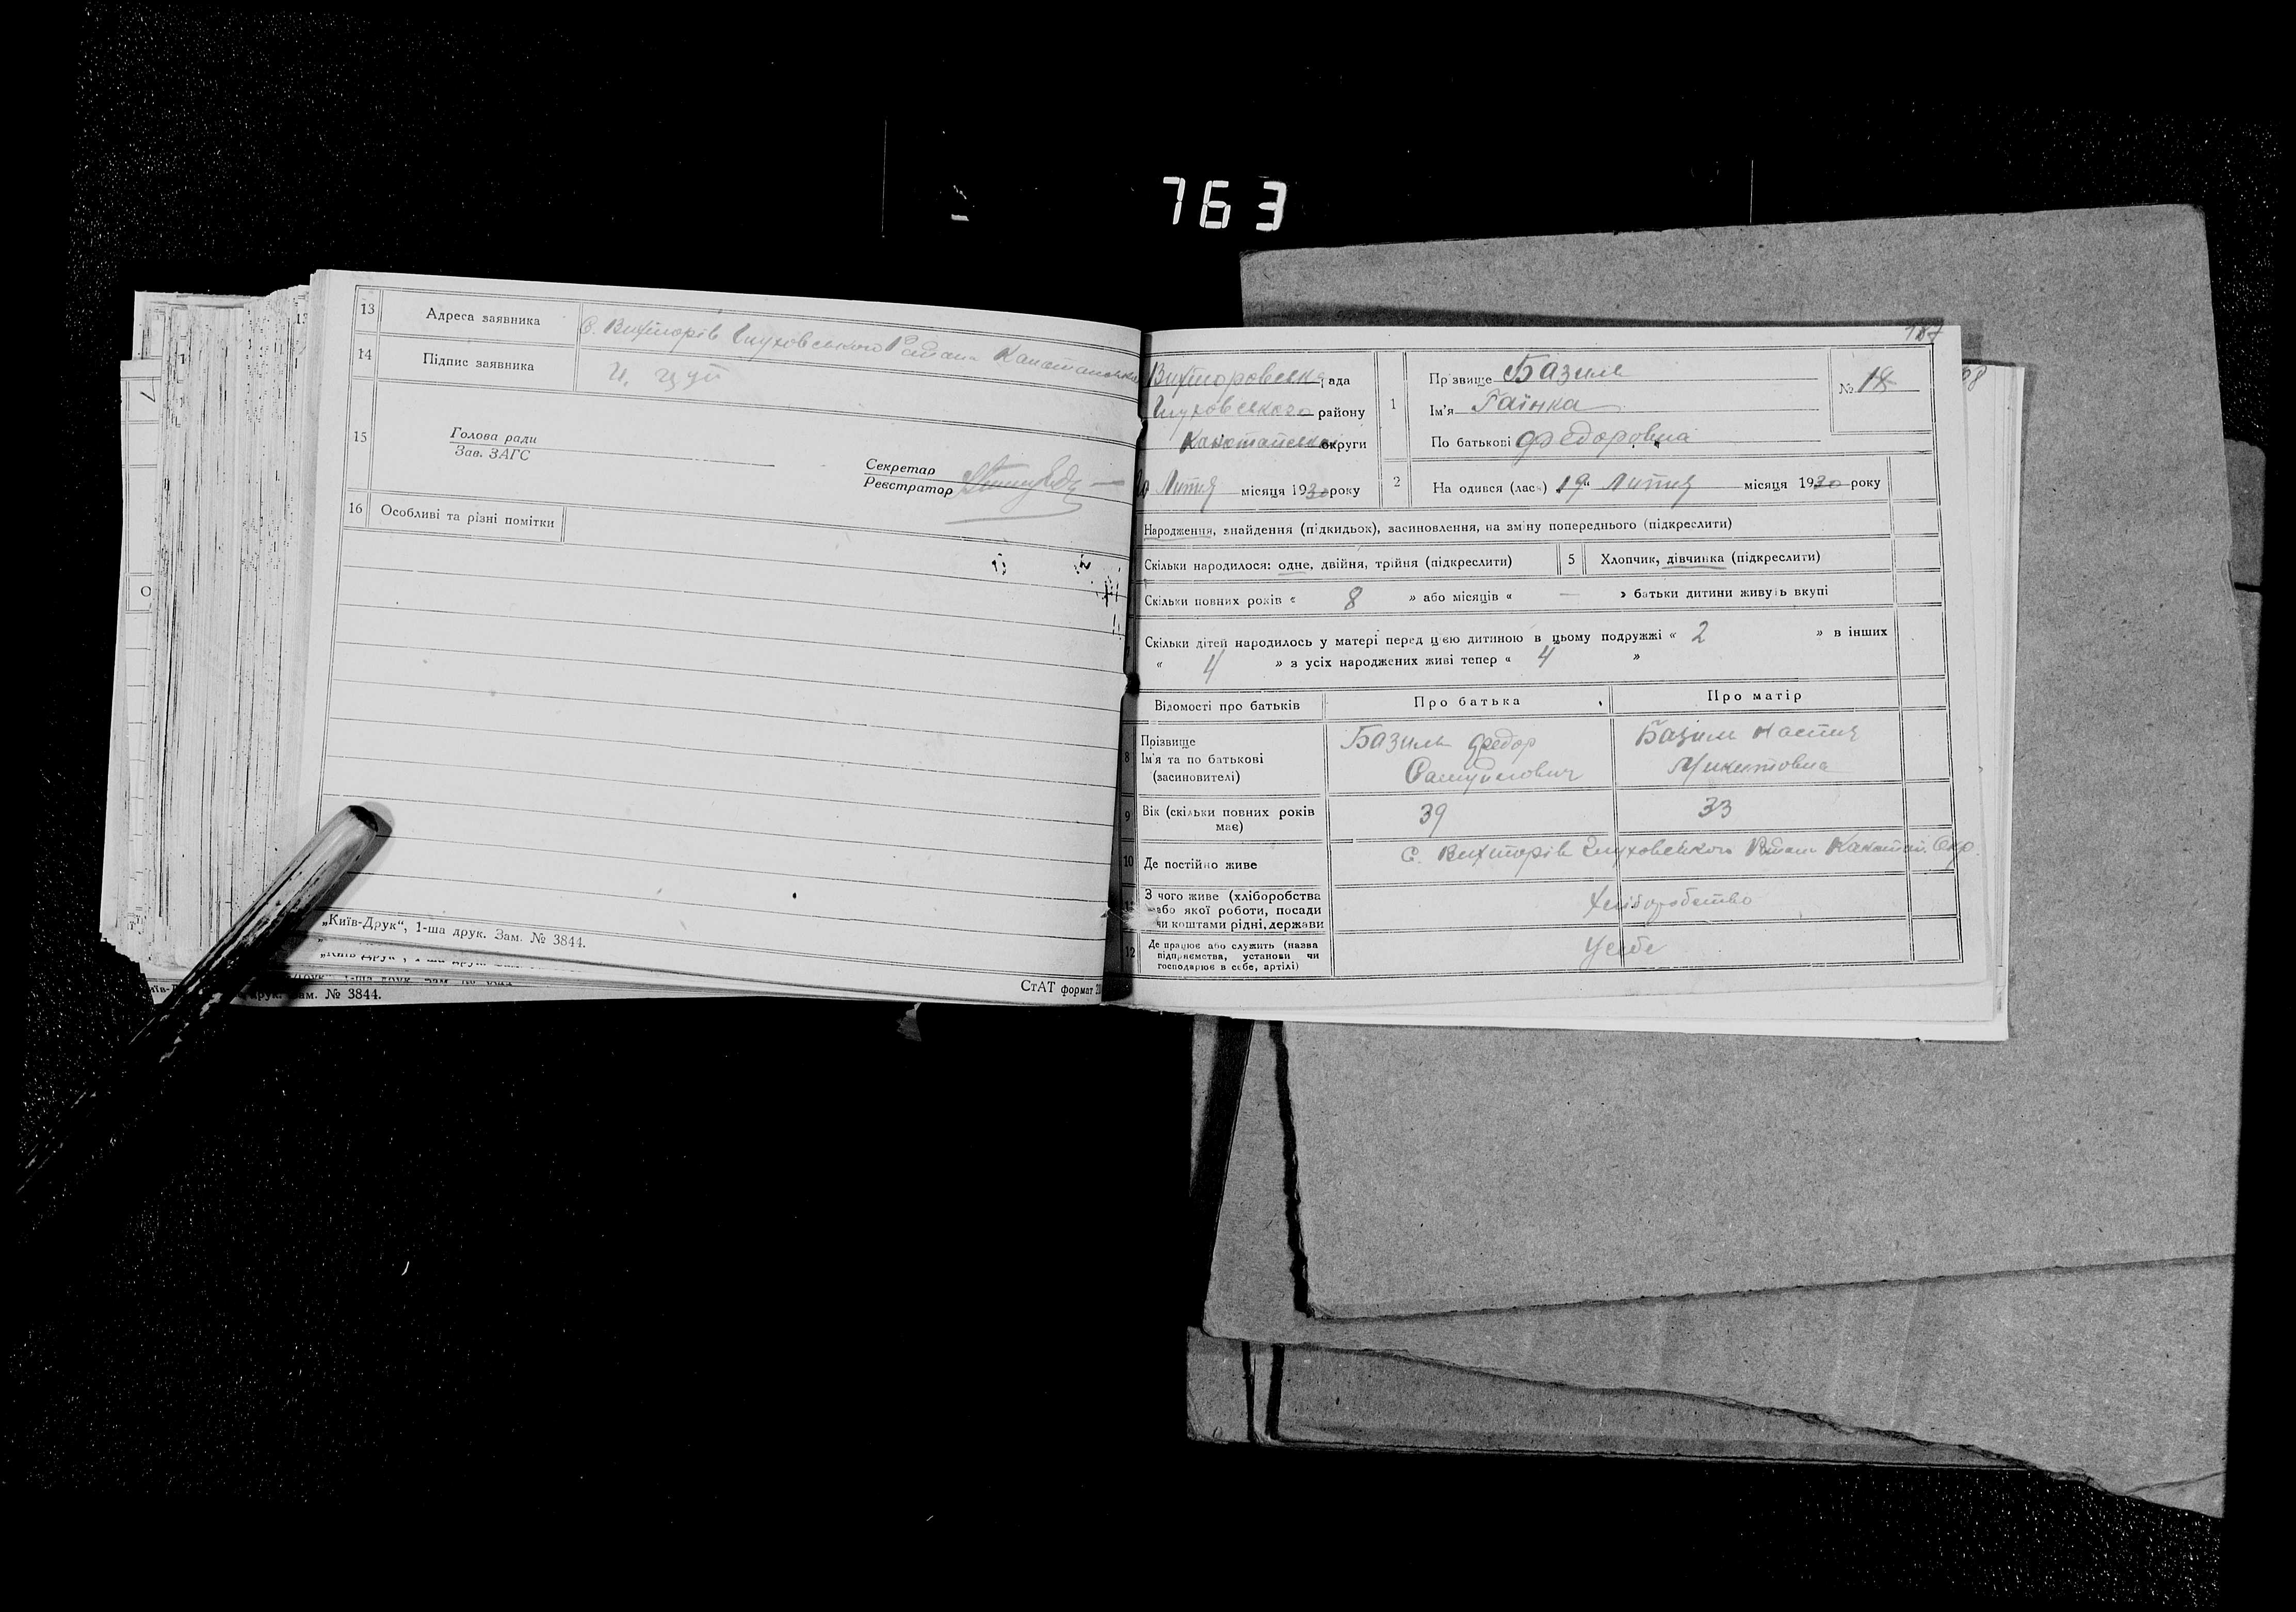 763
13 Адреса заявника С. Вихторів Глуховського Району
14 Підпис заявника
15 Голова ради
Зав. ЗАГС
Секретар
Реєстратор
16 Особливі та різні помітки
„Київ-Друк“, 1-ша друк. Зам. № 3844.
СтАТ формат
друк. Зам. № 3844.
187
Вихторовська рада
Глуховського району
округи
20 Липня місяця 1930 року
1 Прізвище Базиль
Ім'я Гаїнка
По батькові Федоровна
№ 18
2 На одився (лась) 19 Липня місяця 1930 року
Народження, знайдення (підкидьок), засиновлення, на зміну попереднього (підкреслити)
Скільки народилося: одне, двійня, трійня (підкреслити)
5 Хлопчик, дівчинка (підкреслити)
Скільки повних років « 8 » або місяців « — » батьки дитини живуть вкупі
Скільки дітей народилось у матері перед цією дитиною в цьому подружжі « 2 » в інших
« 4 » з усіх народжених живі тепер « 4 »
Відомості про батьків
Про батька
Про матір
8 Прізвище
Ім'я та по батькові
(засиновителі)
Базиль Федор
Самуйлович
Базиль Настия
Микитовна
9 Вік (скільки повних років
має)
39
33
10 Де постійно живе
С. Вихторів Глуховського Окр.
11 З чого живе (хліборобства
або якої роботи, посади
чи коштами рідні, держави
Хліборобство
12 Де працює або служить (назва
підприємства, установи чи
господарює в себе, артілі)
У себе